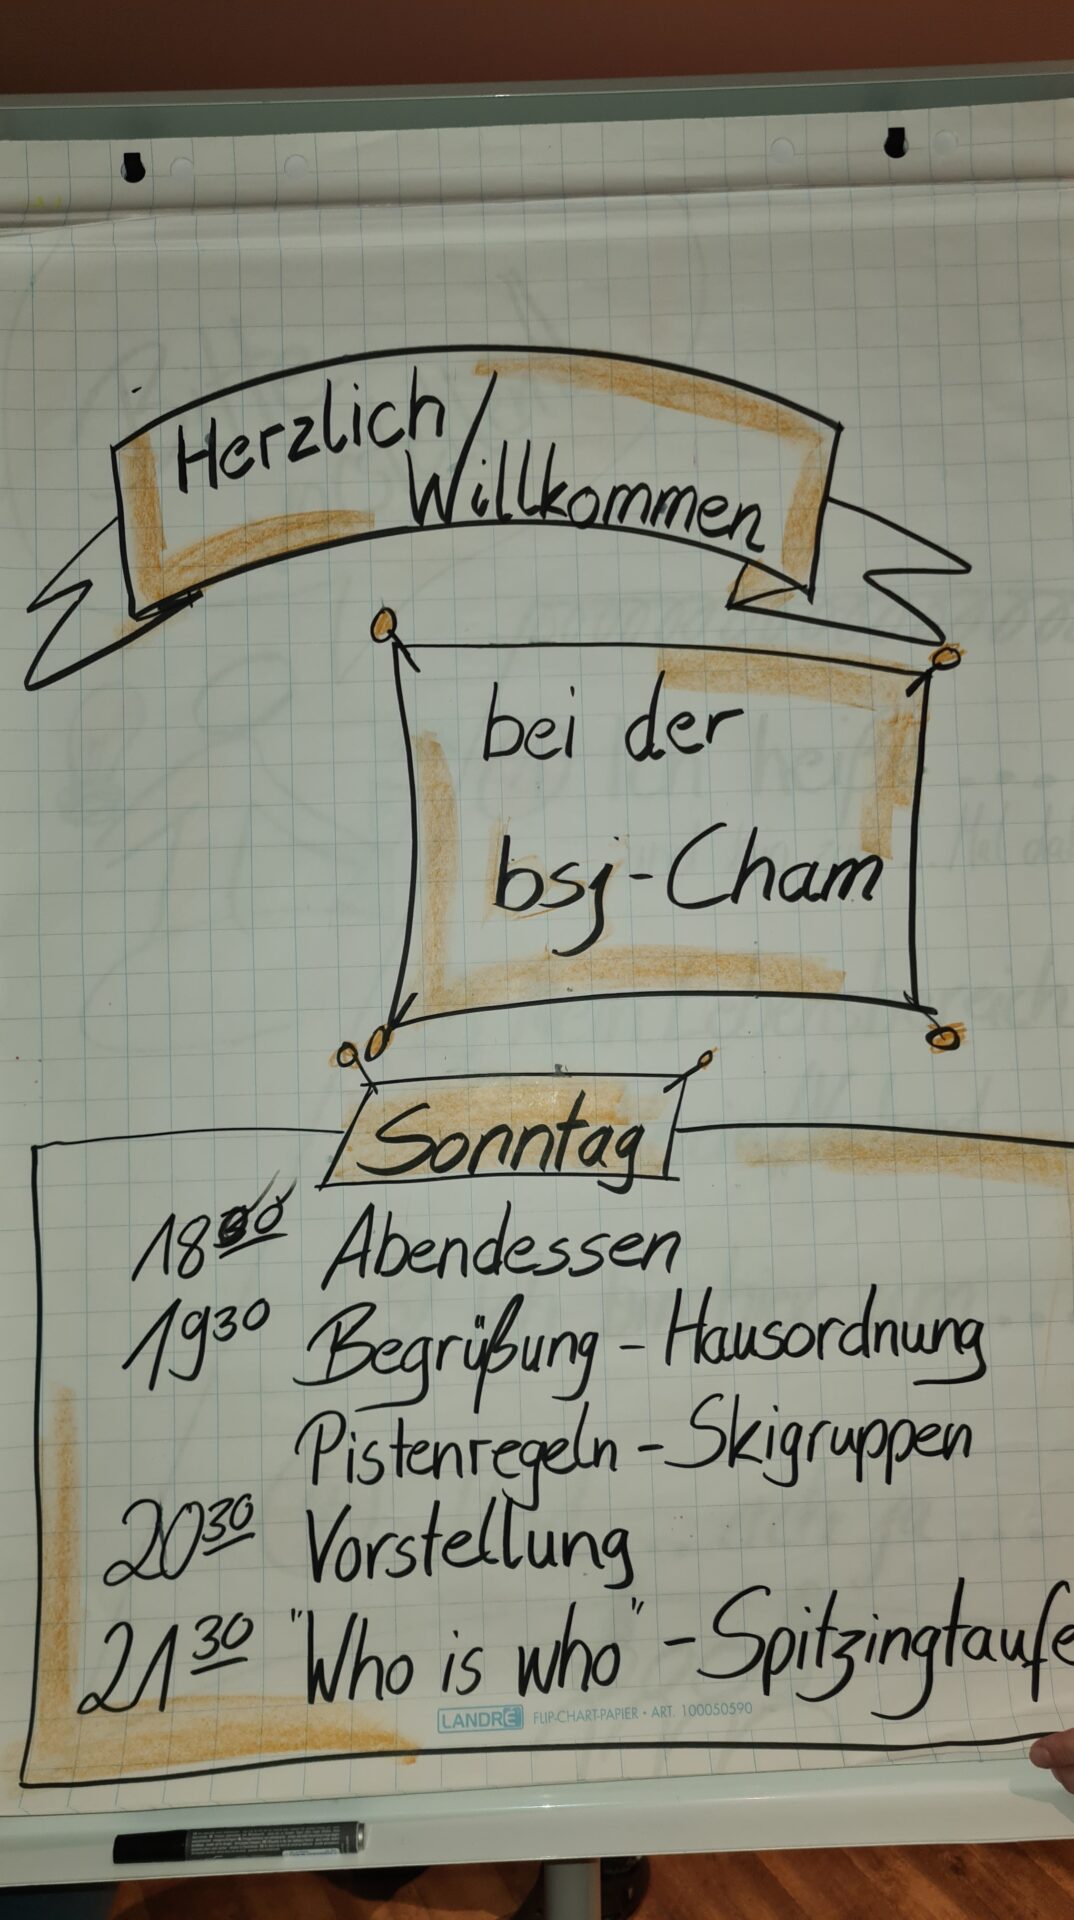 Herzlich
Willkommen
bei der
bsj-Cham
Sonntag
18 Abendessen
19 30 Begrüßung - Hausordnung
Pistenregeln - Skigruppen
20 30 Vorstellung
21 30 "Who is who" - Spitzingtaufe
LANDRÉ FLIP-CHART-PAPIER • ART. 100050590